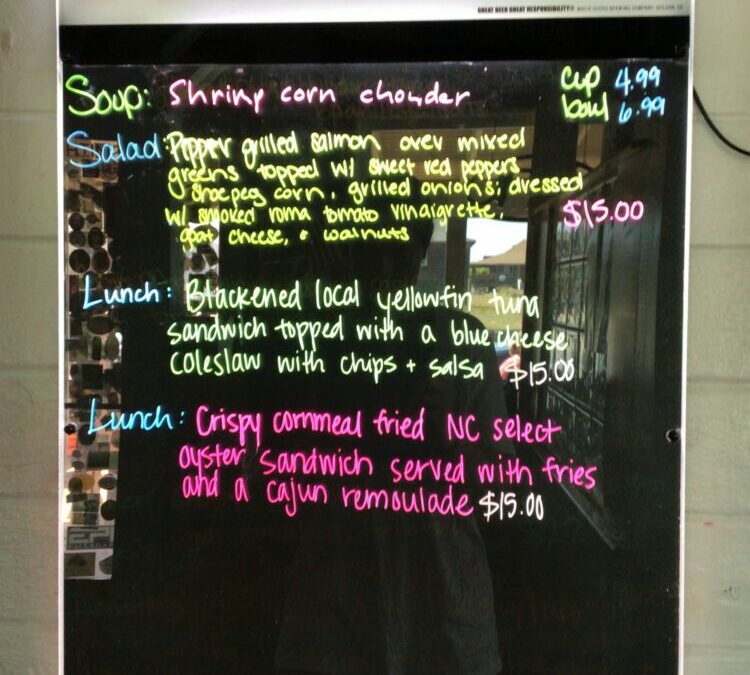 GREAT BEER GREAT RESPONSIBILITY®
Soup: Shrimp corn chowder cup 4.99
bowl 6.99
Salad: Pepper grilled salmon over mixed
greens topped w/ sweet red peppers
shoepeg corn, grilled onions; dressed
w/ smoked roma tomato vinaigrette, $15.00
goat cheese, + walnuts
Lunch: Blackened local yellowfin tuna
sandwich topped with a blue cheese
coleslaw with chips + salsa $15.00
Lunch: Crispy cornmeal fried NC select
oyster sandwich served with fries
and a cajun remoulade $15.00